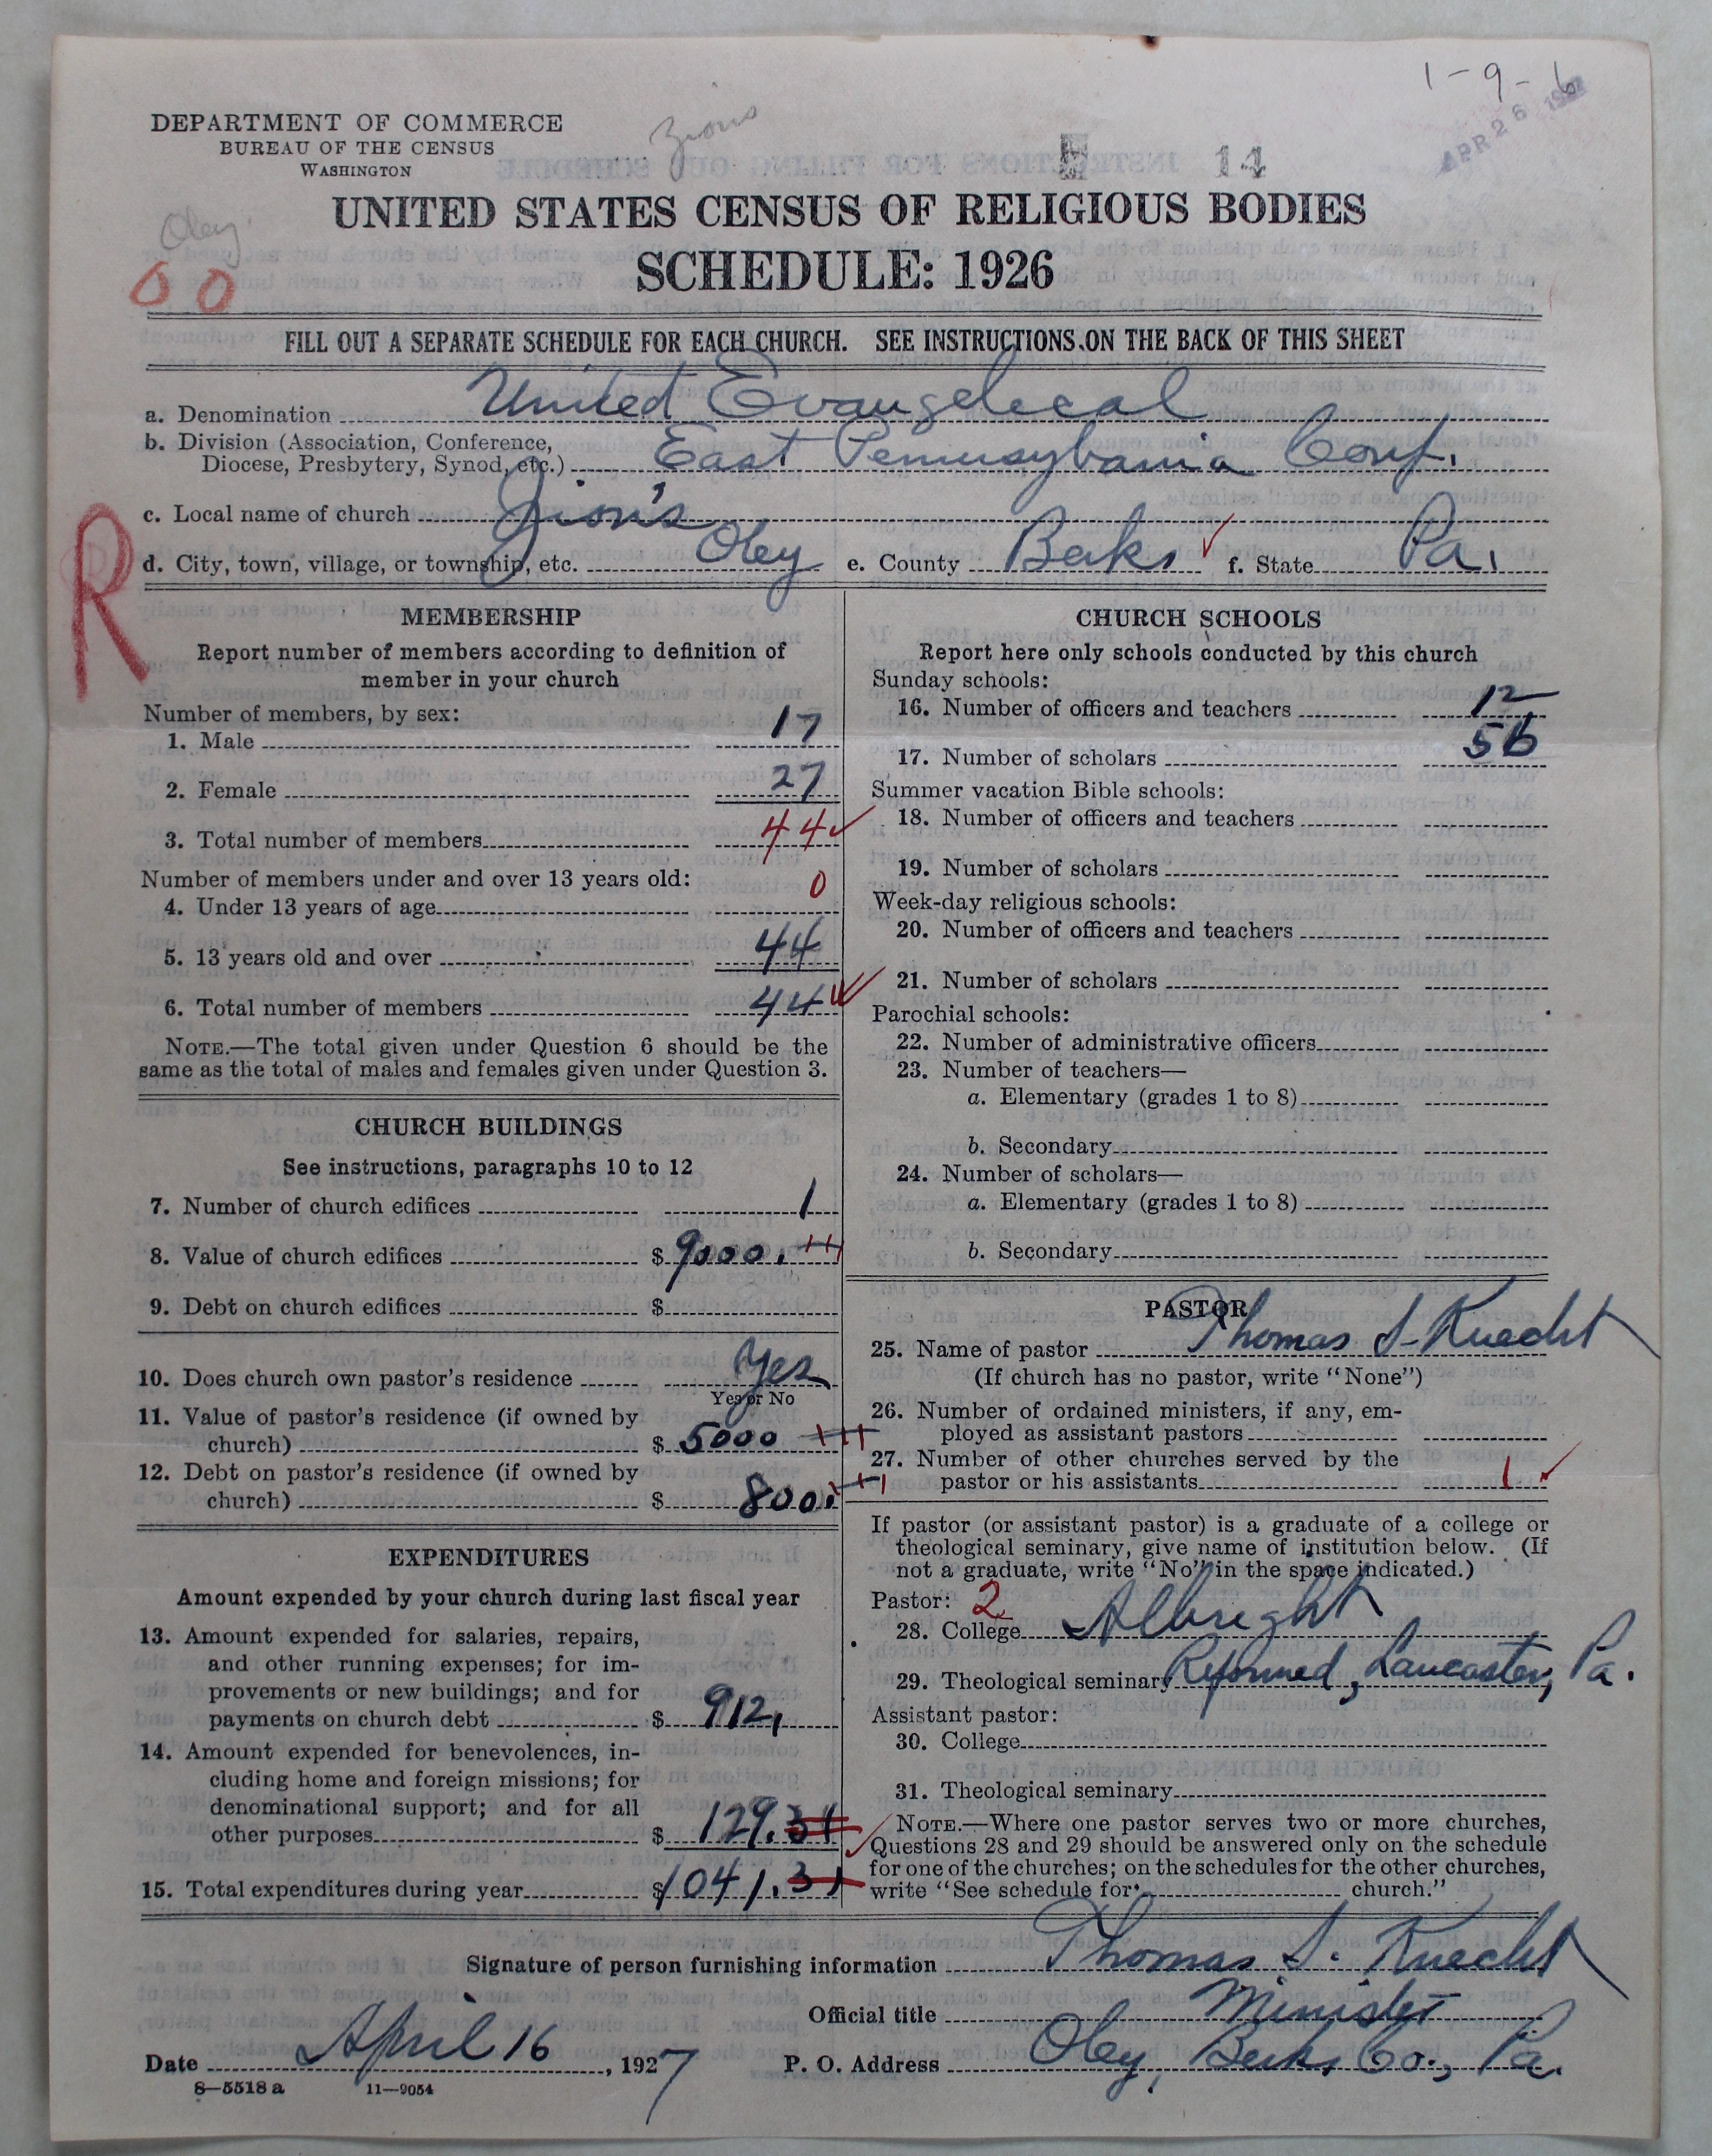 1-9-6
APR 26 192
DEPARTMENT OF COMMERCE
BUREAU OF THE CENSUS
WASHINGTON
Zions
14
UNITED STATES CENSUS OF RELIGIOUS BODIES
Oley
SCHEDULE: 1926
0 0
FILL OUT A SEPARATE SCHEDULE FOR EACH CHURCH. SEE INSTRUCTIONS ON THE BACK OF THIS SHEET
a. Denomination United Evangelical
b. Division (Association, Conference,
Diocese, Presbytery, Synod, etc.) East Pennsylvania Conf.
c. Local name of church Zion's
R
d. City, town, village, or township, etc. Oley e. County Berks ✓ f. State Pa.
MEMBERSHIP
Report number of members according to definition of
member in your church
Number of members, by sex:
1. Male 17
2. Female 27
3. Total number of members 44 ✓
Number of members under and over 13 years old:
4. Under 13 years of age 0
5. 13 years old and over 44
6. Total number of members 44 ✓
NOTE.—The total given under Question 6 should be the
same as the total of males and females given under Question 3.
CHURCH BUILDINGS
See instructions, paragraphs 10 to 12
7. Number of church edifices 1
8. Value of church edifices $ 9000.
9. Debt on church edifices $
10. Does church own pastor's residence Yes
Yes or No
11. Value of pastor's residence (if owned by
church) $ 5000
12. Debt on pastor's residence (if owned by
church) $ 800.
EXPENDITURES
Amount expended by your church during last fiscal year
13. Amount expended for salaries, repairs,
and other running expenses; for im-
provements or new buildings; and for
payments on church debt $ 912,
14. Amount expended for benevolences, in-
cluding home and foreign missions; for
denominational support; and for all
other purposes $ 129.31
15. Total expenditures during year $ 1041.31
CHURCH SCHOOLS
Report here only schools conducted by this church
Sunday schools:
16. Number of officers and teachers 12
17. Number of scholars 56
Summer vacation Bible schools:
18. Number of officers and teachers
19. Number of scholars
Week-day religious schools:
20. Number of officers and teachers
21. Number of scholars
Parochial schools:
22. Number of administrative officers
23. Number of teachers—
a. Elementary (grades 1 to 8)
b. Secondary
24. Number of scholars—
a. Elementary (grades 1 to 8)
b. Secondary
PASTOR
25. Name of pastor Thomas S. Knecht
(If church has no pastor, write "None")
26. Number of ordained ministers, if any, em-
ployed as assistant pastors
27. Number of other churches served by the
pastor or his assistants 1 ✓
If pastor (or assistant pastor) is a graduate of a college or
theological seminary, give name of institution below. (If
not a graduate, write "No" in the space indicated.)
Pastor: 2
28. College Albright
29. Theological seminary Reformed, Lancaster, Pa.
Assistant pastor:
30. College
31. Theological seminary
NOTE.—Where one pastor serves two or more churches,
Questions 28 and 29 should be answered only on the schedule
for one of the churches; on the schedules for the other churches,
write "See schedule for church."
Signature of person furnishing information Thomas S. Knecht
Official title Minister
Date April 16, 1927 P. O. Address Oley, Berks Co., Pa.
8—5518 a 11—9054